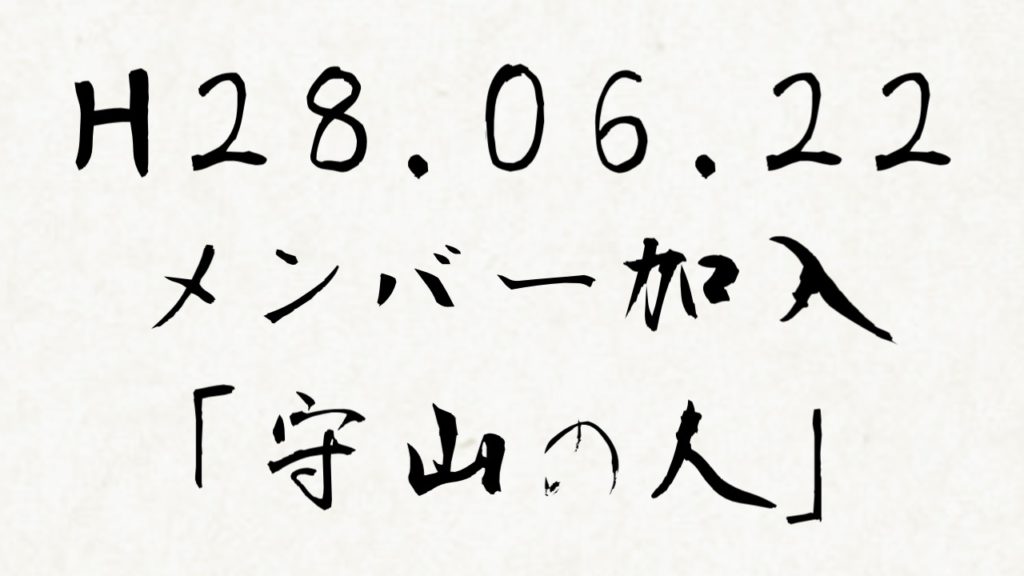 H28.06.22
メンバー加入
「守山の人」